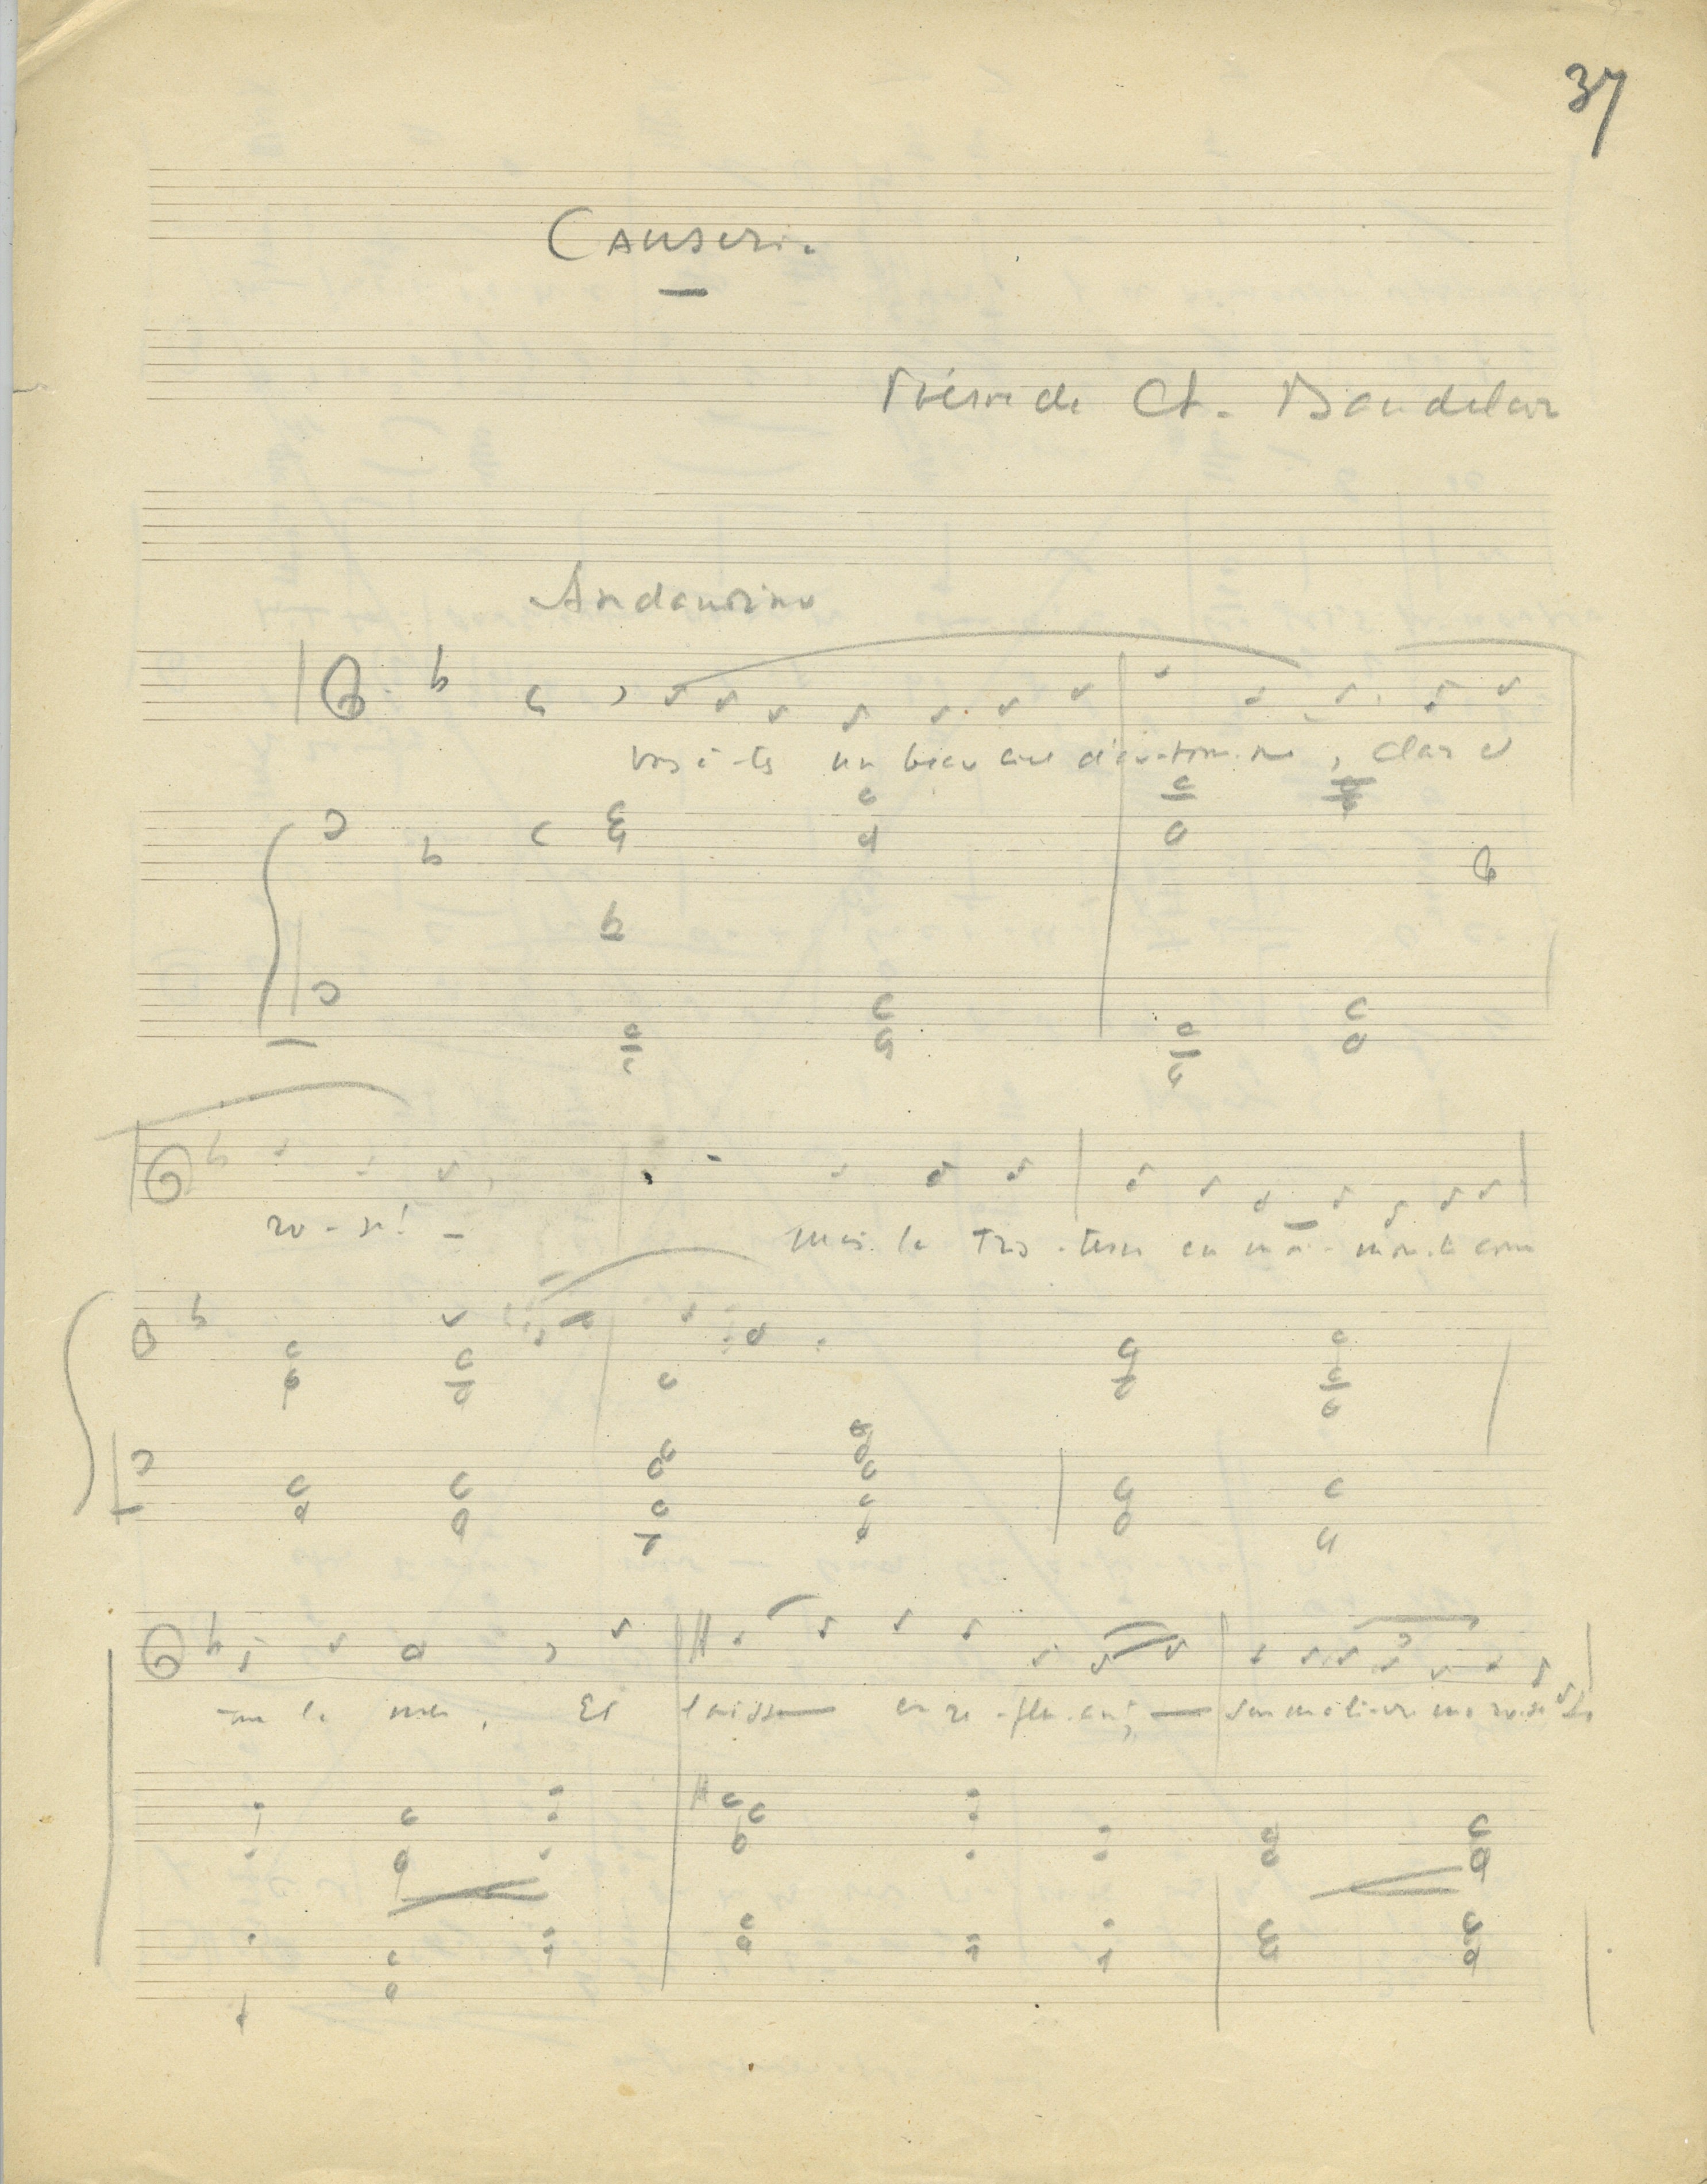 37
Causerie
Poésie de Ch. Baudelaire
Andantino
Vous ê-tes un beau ciel d'au-tom-ne, clair et
ro-se! -
Mais la tris-tesse en moi mon-te com
-me la mer, Et laisse en re-flu-ant, sur ma lè-vre moro-se Le